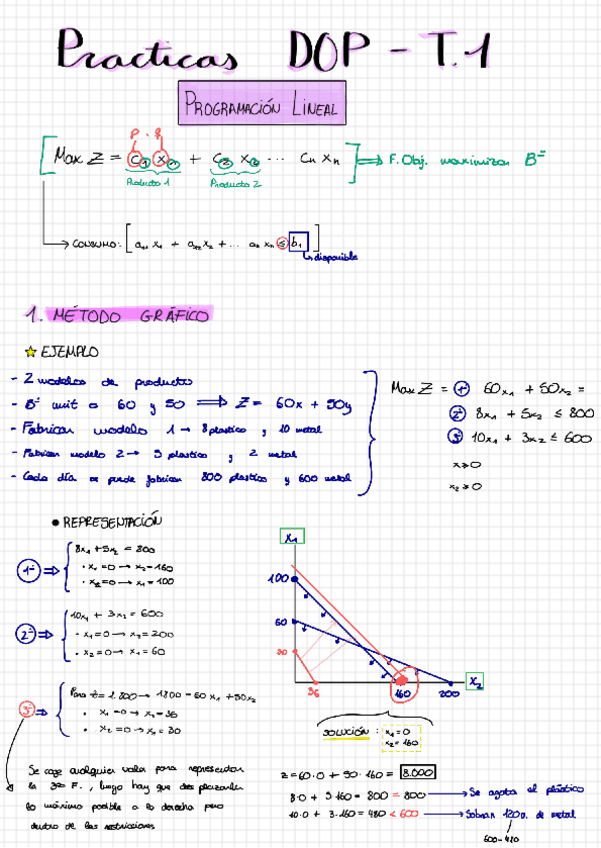 Practicas DOP - T.1
PROGRAMACIÓN LINEAL
P · q
Max Z = C1 X1 + C2 X2 ... Cn Xn ⟹ F. Obj. maximizar Bº
Producto 1 Producto 2
→ CONSUMO: [ a11 x1 + a12 x2 + ... an xn ≤ b1 ]
↳ disponible
1. MÉTODO GRÁFICO
☆ EJEMPLO
- 2 modelos de producto
- Bº unit a 60 y 50 ⟹ Z = 60x + 50y
- Fabricar modelo 1 → 8 plastico y 10 metal
- Fabricar modelo 2 → 5 plastico y 2 metal
- Cada día se puede fabricar 800 plastico y 600 metal
Max Z = 1 60x1 + 50x2 =
2 8x1 + 5x2 ≤ 800
3 10x1 + 3x2 ≤ 600
x≥0
x2 ≥0
• REPRESENTACIÓN
1º ⟹
8x1 + 5x2 = 800
· x1 = 0 → x2 = 160
· x2 = 0 → x1 = 100
2º ⟹
10x1 + 3x2 = 600
· x1 = 0 → x2 = 200
· x2 = 0 → x1 = 60
3º ⟹
Para z = 1.800 → 1800 = 60 x1 + 50x2
· x1 = 0 → x2 = 36
· x2 = 0 → x1 = 30
Se coge cualquier valor para representar
la 3º F., luego hay que desplazarla
lo máximo posible a la derecha pero
dentro de las restricciones
X1
100
60
30
36
160
200
X2
SOLUCIÓN : x1 = 0
x2 = 160
z = 60·0 + 50·160 = 8.000
8·0 + 5·160 = 800 = 800 → Se agota el plástico
10·0 + 3·160 = 480 < 600 → Sobran 120u. de metal
600-480